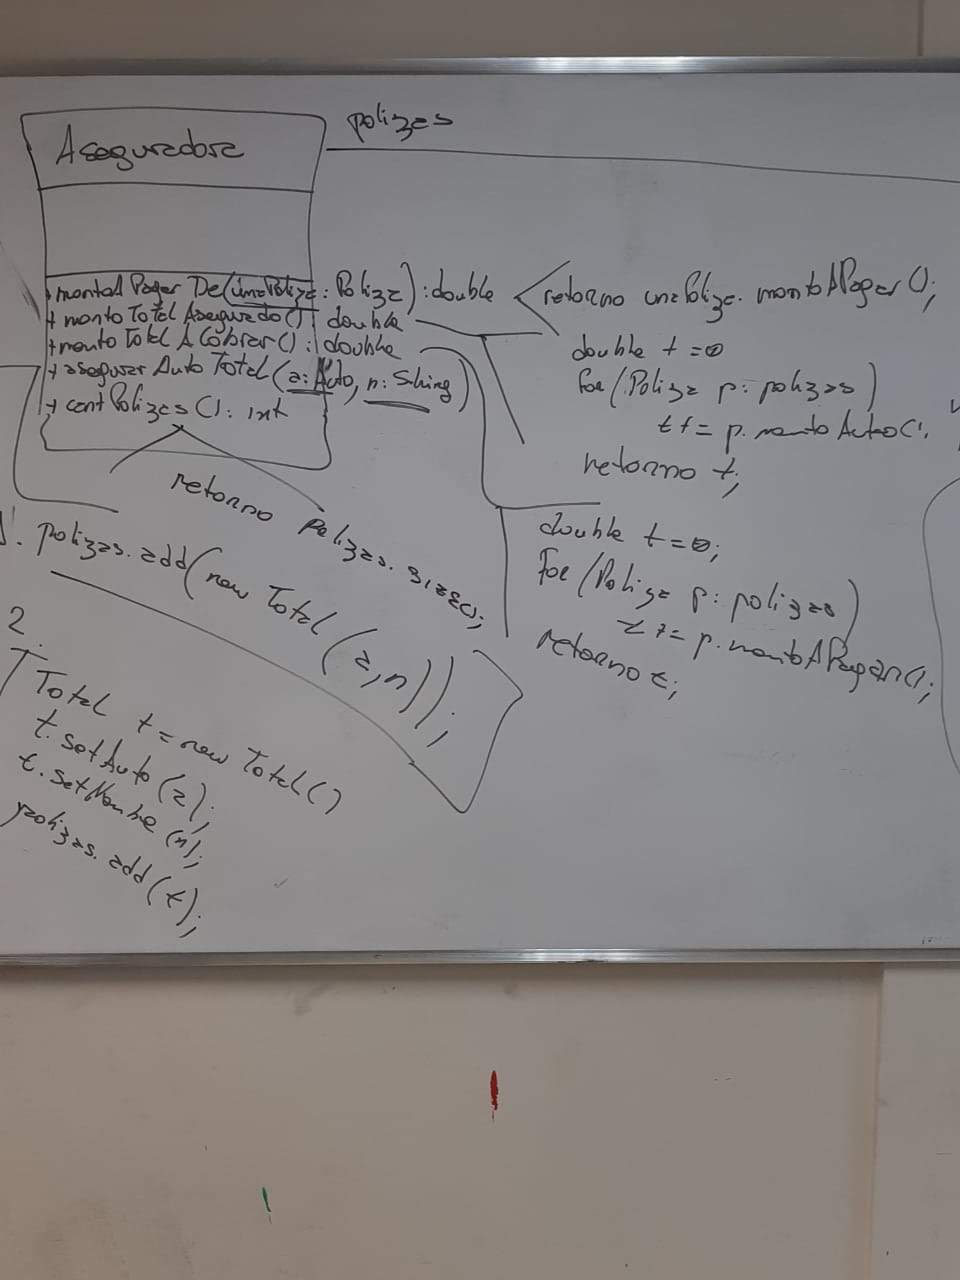 Aseguradora
polizas
+ montoAPagar De(unaPoliza: Poliza): double
+ montoTotalAsegurado(): double
+ montoTotalACobrar(): double
+ asegurarAutoTotal(a: Auto, n: String)
+ cantPolizas(): int
retorno unaPoliza.montoAPagar();
double t=0
for(Poliza p: polizas)
t+= p.montoAuto();
retorno t;
double t=0;
For (Poliza p: polizas)
t += p.montoAPagar();
retorno t;
retorno polizas.size();
1. polizas.add(new Total(a,n));
2.
Total t = new Total()
t.setAuto(a);
t.setNombre(n);
polizas.add(t);